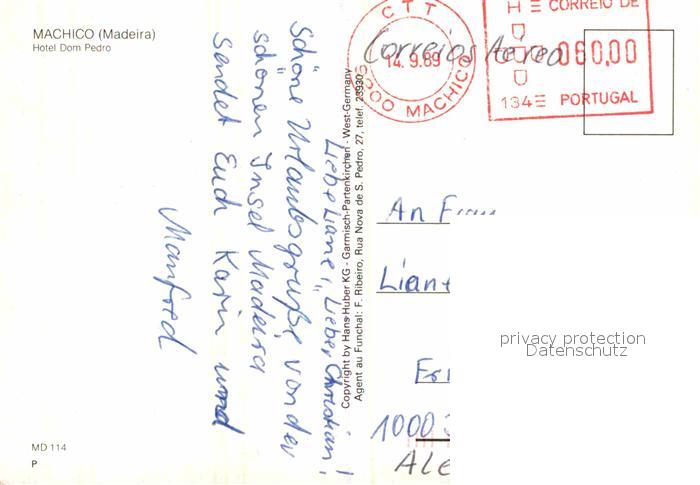 MACHICO (Madeira)
Hotel Dom Pedro
Liebe Liane, Lieber Christian!
Schöne Urlaubsgrüße von der
schönen Insel Madeira
sendet Euch Karin und
Manfred
Copyright by Hans Huber KG - Garmisch-Partenkirchen - West-Germany
Agent au Funchal: F. Ribeiro, Rua Nova de S. Pedro, 27, telef. 23930
MD 114
P
CTT
14. 9.89
MACHICO
Correios Aéreo
CORREIO DE
060,00
134
PORTUGAL
An
Lian
1000
privacy protection
Datenschutz